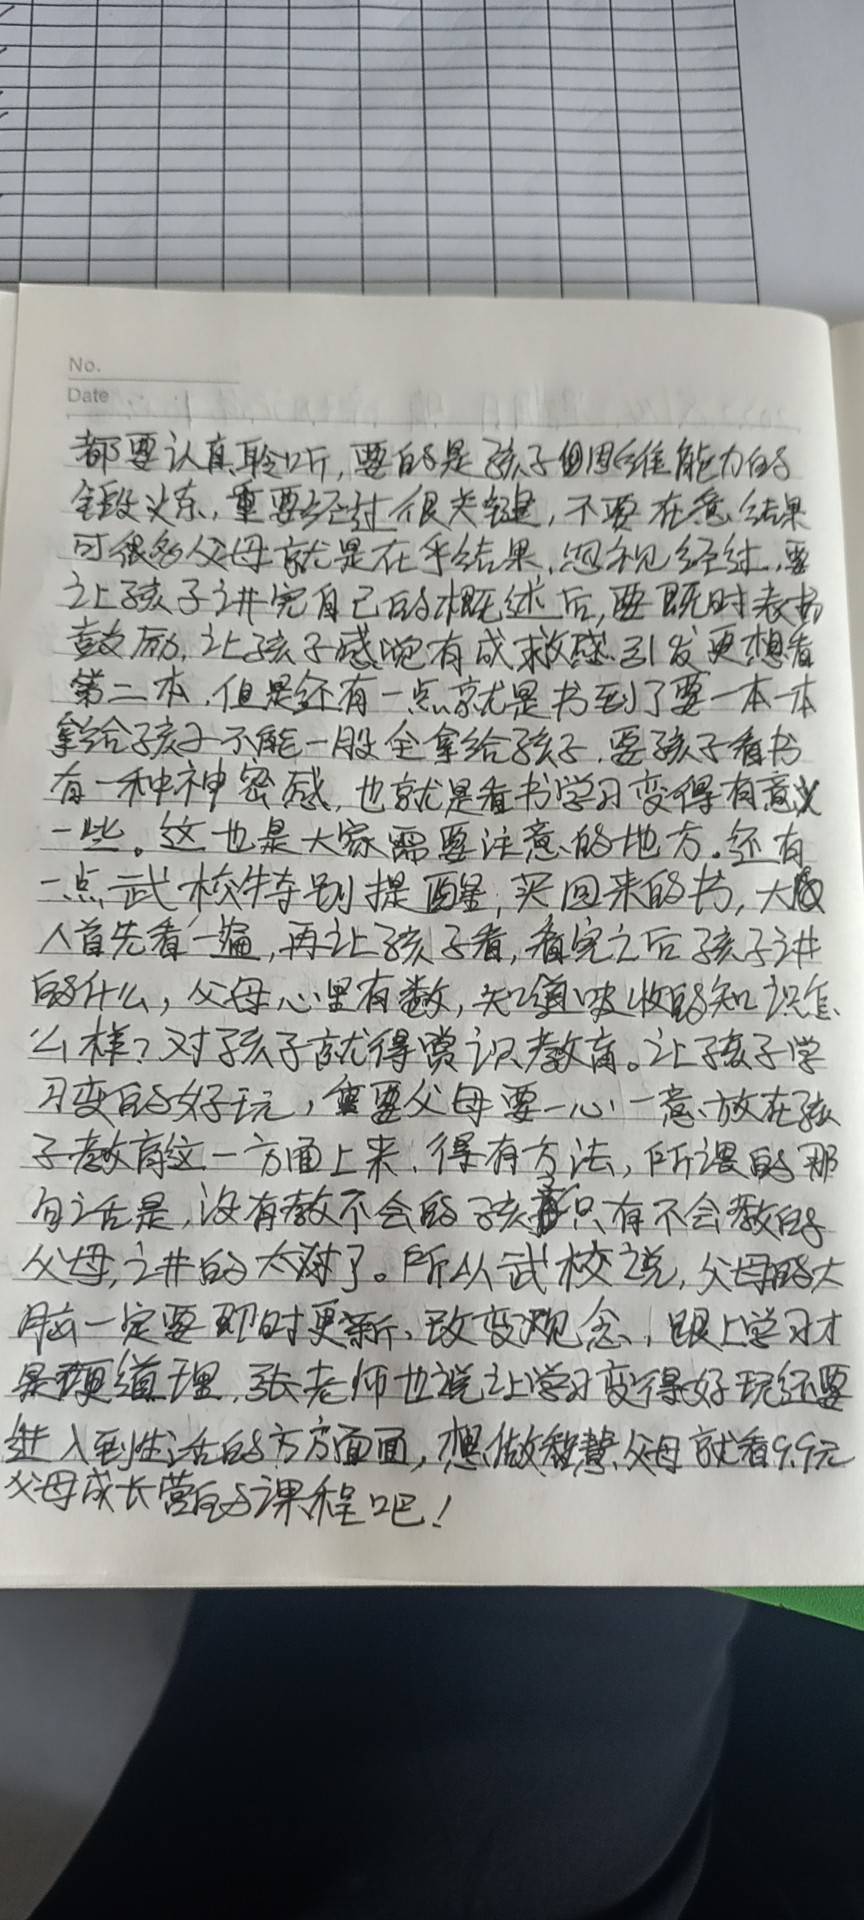 No.
Date
都要认真聆听,要的是孩子思维能力的
锻炼,重要经过很关键,不要在意结果
可很多父母就是在乎结果,忽视经过,要
让孩子讲完自己的概述后,要既时表扬
鼓励,让孩子感觉有成就感引发更想看
第二本,但是还有一点就是书到了要一本一本
拿给孩子不能一股全拿给孩子,要孩子看书
有一种神密感,也就是看书学习变得有意义
一些。这也是大家需要注意的地方。还有
一点武校特别提醒,买回来的书,大
人首先看一遍,再让孩子看,看完之后孩子讲
的什么,父母心里有数,知道吸收的知识怎
么样?对孩子就得赏识教育。让孩子学
习变的好玩,重要父母要一心一意放在孩
子教育这一方面上来,得有方法,所谓的那
句话是,没有教不会的孩子只有不会教的
父母,讲的太对了。所以武校说,父母的大
脑一定要即时更新,改变观念,跟上学习才
是硬道理,张老师也说让学习变得好玩还要
进入到生活的方方面面,想做智慧父母就看9.9元
父母成长营的课程吧!